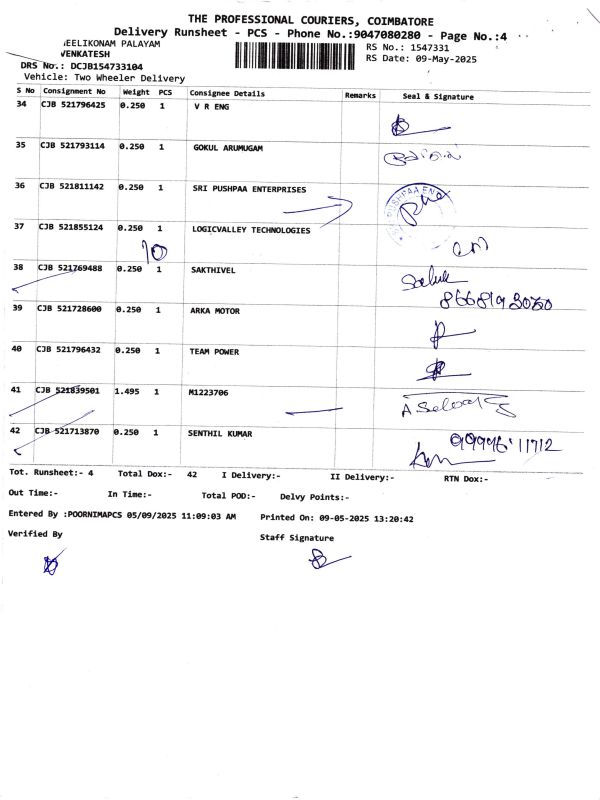 THE PROFESSIONAL COURIERS, COIMBATORE
Delivery Runsheet - PCS - Phone No.:9047080280 - Page No.:4
EELIKONAM PALAYAM
VENKATESH
RS No.: 1547331
RS Date: 09-May-2025
DRS No.: DCJB154733104
Vehicle: Two Wheeler Delivery
S No Consignment No Weight PCS Consignee Details Remarks Seal & Signature
34 CJB 521796425 0.250 1 V R ENG
35 CJB 521793114 0.250 1 GOKUL ARUMUGAM
36 CJB 521811142 0.250 1 SRI PUSHPAA ENTERPRISES
PUSHPAA EN
37 CJB 521855124 0.250 1 LOGICVALLEY TECHNOLOGIES
10
38 CJB 521769488 0.250 1 SAKTHIVEL
8668193030
39 CJB 521728600 0.250 1 ARKA MOTOR
40 CJB 521796432 0.250 1 TEAM POWER
41 CJB 521839501 1.495 1 M1223706
42 CJB 521713870 0.250 1 SENTHIL KUMAR
Tot. Runsheet:- 4 Total Dox:- 42 I Delivery:- II Delivery:- RTN Dox:-
Out Time:- In Time:- Total POD:- Delvy Points:-
Entered By :POORNIMAPCS 05/09/2025 11:09:03 AM Printed On: 09-05-2025 13:20:42
Verified By Staff Signature